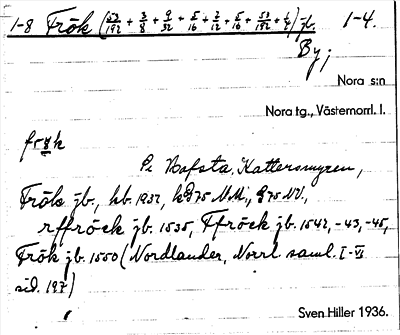 1-8 Frök (53/192 + 3/8 + 9/32 + 5/16 + 7/12 + 5/16 + 53/192 + 1/4) jb. 1-4.
By;
Nora s:n
Nora tg., Västernorrl. l.
frȳk
Hafsta, Kattersmyren,
Frök jb., hb. 1937,
rffröck jb. 1535, Ffröck jb. 1542, -43, -45,
Frök jb. 1550 (Nordlander, Norrl. saml. I-VI
sid. 197)
Sven Hiller 1936.